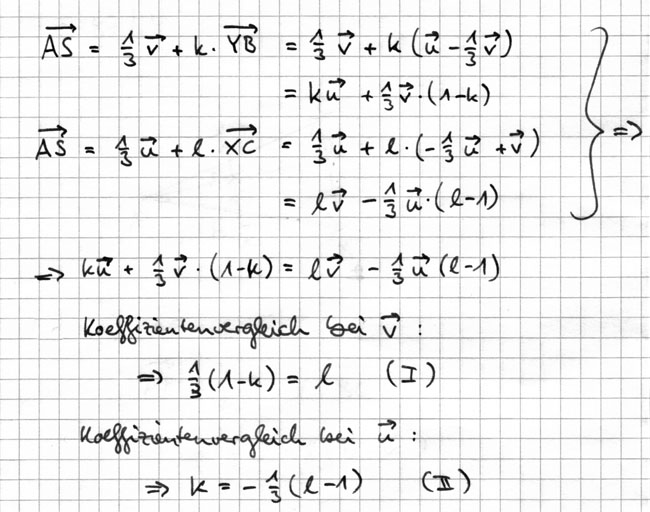 $\overrightarrow{AS} = \frac{1}{3}\vec{v} + k \cdot \overrightarrow{YB} = \frac{1}{3}\vec{v} + k(\vec{u} - \frac{1}{3}\vec{v})$
$= k\vec{u} + \frac{1}{3}\vec{v} \cdot (1-k)$
$\overrightarrow{AS} = \frac{1}{3}\vec{u} + l \cdot \overrightarrow{XC} = \frac{1}{3}\vec{u} + l \cdot (-\frac{1}{3}\vec{u} + \vec{v})$ } ⇒
$= l\vec{v} - \frac{1}{3}\vec{u} \cdot (l-1)$
⇒ $k\vec{u} + \frac{1}{3}\vec{v} \cdot (1-k) = l\vec{v} - \frac{1}{3}\vec{u}(l-1)$
Koeffizientenvergleich bei $\vec{v}$ :
⇒ $\frac{1}{3}(1-k) = l$ (I)
Koeffizientenvergleich bei $\vec{u}$ :
⇒ $k = -\frac{1}{3}(l-1)$ (II)